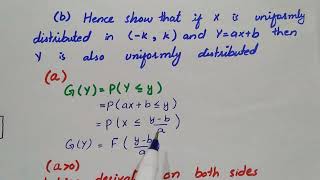 (b) Hence show that if X is uniformly
distributed in (-k, k) and Y=ax+b then
Y is also uniformly distributed
(a)
G(Y)=P(Y ≤ y)
=P(ax+b ≤ y)
=P(X ≤ y-b/a)
G(Y) = F(y-b/a)
(a>0)
derivat on both sides